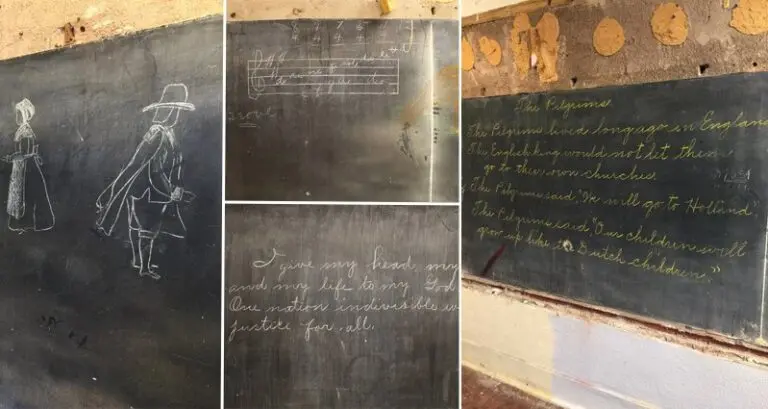 I give my head, my
and my life to my God
One nation indivisible w
justice for all.
The Pilgrims
The Pilgrims lived long ago in England
The English king would not let them
go to their own churches
The Pilgrims said, "We will go to Holland
The Pilgrims said, "Our children will
grow up like the Dutch children."